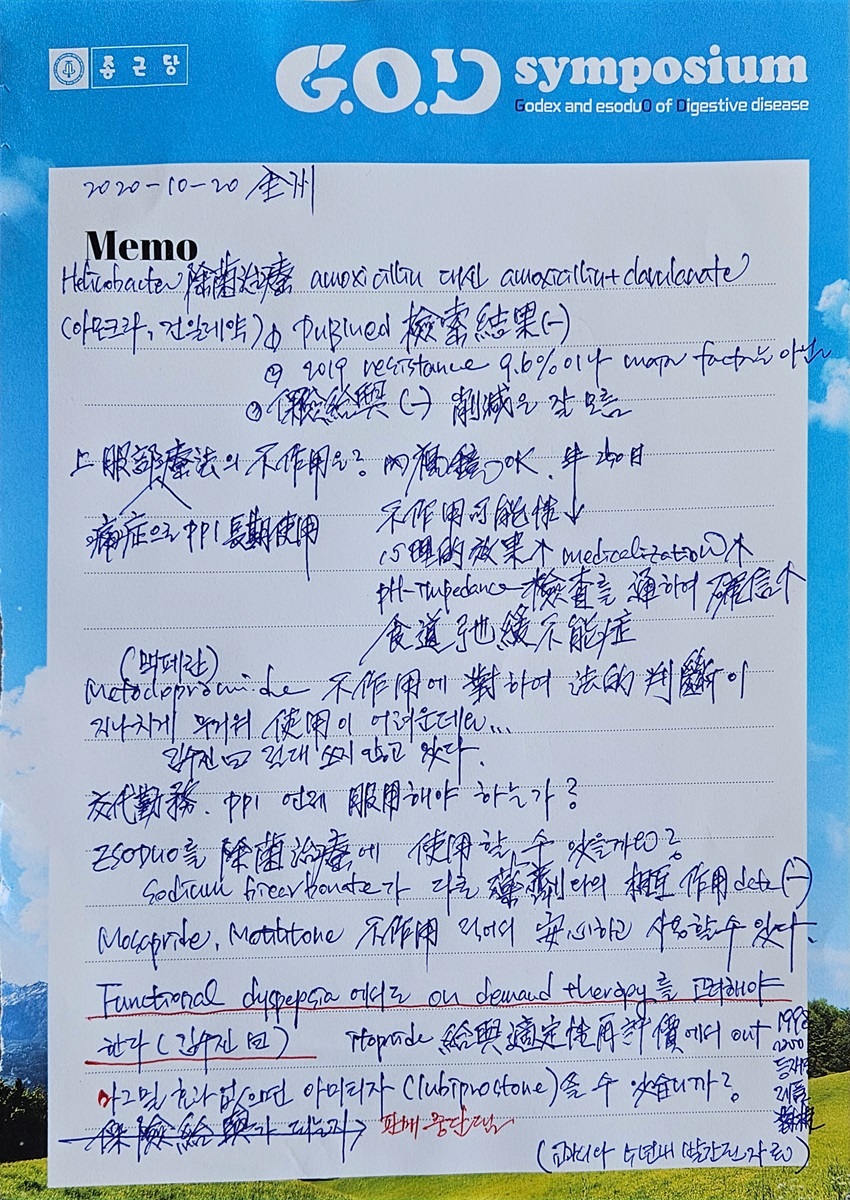 종근당
G.O.D symposium
Godex and esoduO of Digestive disease
2020-10-20 全州
Memo
Helicobacter 除菌治療 amoxicillin 대신 amoxicillin+clavulanate
(아모크라, 건일제약) ① Pubmed 檢索結果(-)
② 2019 resistance 9.6%이나 major factor는 아님
③ 保險給與 (-) 削減은 잘 모름
上腹部療法의 不作用은? OK. 半 日
痛症으로 PPI 長期使用 不作用可能性↓
心理的 效果↑ medicalization↑
pH-impedance 檢査를 通하여 確信↑
食道弛緩不能症
(맥페란)
Metoclopromide 不作用에 對하여 法的 判斷이
지나치게 무거워 使用이 어려운데요...
김수진 曰 절대 쓰지 않고 있다.
交代勤務. PPI 언제 服用해야 하는가?
ESODUO를 除菌治療에 使用할 수 있을까요?
Sodium bicarbonate가 다른 藥劑와의 相互作用 data (-)
Mosapride, Motilitone 不作用 적어서 安心하고 사용할 수 있다.
Functional dyspepsia에서도 on demand therapy를 고려해야
한다 (김수진 曰) itopride 給與適定性再評價에서 out
1998
2000
등재된
제품
마그밀 효과 없으면 아미티자 (lubiprostone) 쓸 수 있습니까?
保險給與가 되는지? 판매 중단됨